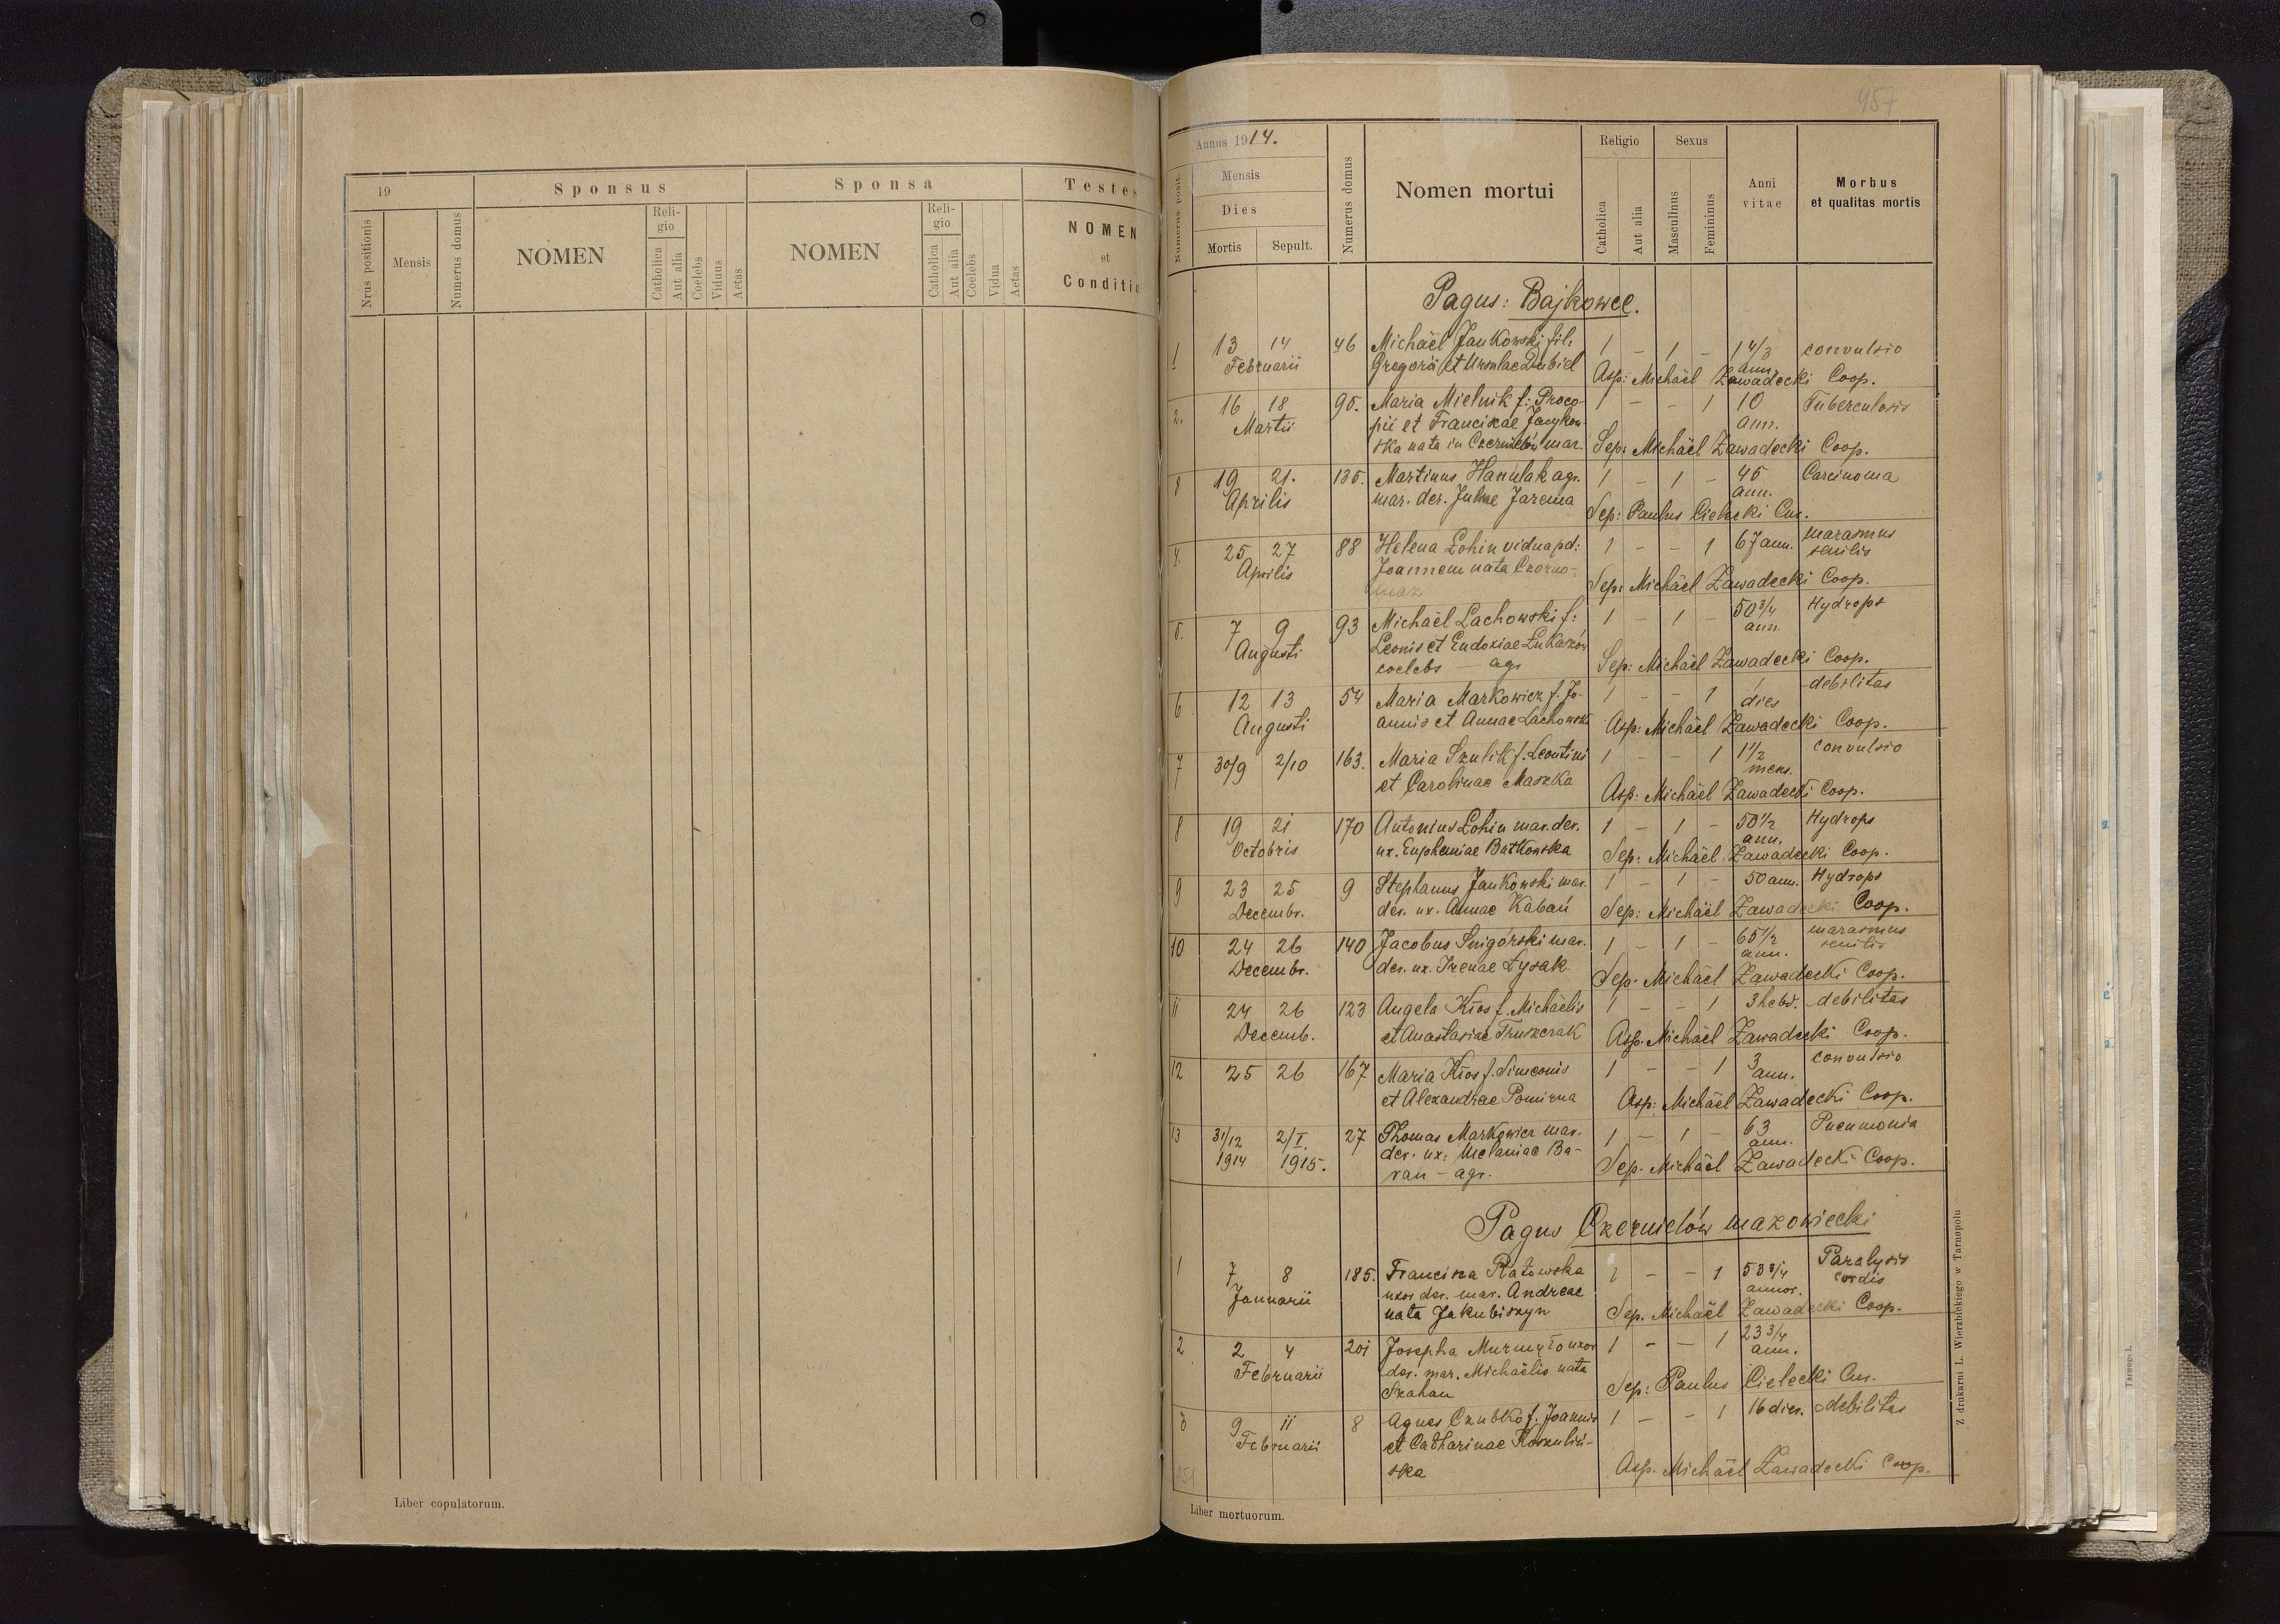 19
Sponsus
Sponsa
Testes
Nrus positionis
Mensis
Numerus domus
NOMEN
Religio
Catholica
Aut alia
Coelebs
Viduus
Aetas
NOMEN
Religio
Catholica
Aut alia
Coelebs
Vidua
Aetas
NOMEN
et
Conditio
Liber copulatorum.
457
Annus 1914.
Numerus posit.
Mensis
Dies
Mortis
Sepult.
Numerus domus
Nomen mortui
Religio
Catholica
Aut alia
Sexus
Masculinus
Femininus
Anni
vitae
Morbus
et qualitas mortis
Pagus: Bajkowce.
1 13 14 46 Michaël Jankowski fil. 1 – 1 – 1 4/3 convulsio
Februarii Gregorii et Ursulae Dubiel ann.
Asp: Michaël Zawadecki Coop.
2. 16 18 95. Maria Mielnik f: Proco- 1 – – 1 10 Tuberculosis
Martii pii et Franciscae Jacykow- ann.
ska nata in Czernielów maz. Sep: Michaël Zawadecki Coop.
3 19 21. 135. Martinus Hanulak agr. 1 – 1 – 45 Carcinoma
Aprilis mar. der. Juliae Jarema ann.
Sep: Paulus Cielecki Cur.
4. 25 27 88 Helena Łohin vidua pd: 1 – – 1 67 ann. marasmus
Aprilis Joannem nata Czorno- senilis
maz Sep: Michaël Zawadecki Coop.
5. 7 9 93 Michaël Lachowski f: 1 – 1 – 50 3/4 Hydrops
Augusti Leonis et Eudoxiae Łukaszów ann.
coelebs – agr Sep: Michaël Zawadecki Coop.
6 12 13 54 Maria Markowicz f. Jo- 1 – – 1 1 debilitas
Augusti annis et Annae Lachowski dies
Asp: Michaël Zawadecki Coop.
7 30/9 2/10 163. Maria Szulik f. Leontini 1 – – 1 1 1/2 convulsio
et Carolinae Maszka mens.
Asp: Michaël Zawadecki Coop.
8 19 21 170 Antonius Łohin mar. der. 1 – 1 – 50 1/2 Hydrops
Octobris ux. Euphemiae Batkowska ann.
Sep: Michaël Zawadecki Coop.
9 23 25 9 Stephanus Jankowski mar. 1 – 1 – 50 ann. Hydrops
Decembr. der. ux. Annae Kabań Sep: Michaël Zawadecki Coop.
10 24 26 140 Jacobus Snigórski mar. 1 – 1 – 65 1/2 marasmus
Decembr. der. ux. Irenae Łysak ann. senilis
Sep. Michaël Zawadecki Coop.
11 24 26 123 Angela Kios f. Michaëlis 1 – – 1 3 hebd. debilitas
Decemb. et Anastasiae Truszczak Asp. Michaël Zawadecki Coop.
12 25 26 167 Maria Kios f. Simeonis 1 – – 1 3 convulsio
et Alexandrae Pomirna ann.
Asp: Michaël Zawadecki Coop.
13 31/12 2/I 27 Thomas Markowicz mar. 1 – 1 – 63 Pneumonia
1914 1915. der. ux: Melaniae Ba- ann.
ran – agr. Sep. Michaël Zawadecki Coop.
Pagus Czernielów mazowiecki
1 7 8 185. Francisca Ratowska 1 – – 1 53 3/4 Paralysis
Januarii uxor der. mar. Andreae annor. cordis
nata Jakubiszyn Sep. Michaël Zawadecki Coop.
2 2 4 201 Josepha Murmyło uxor 1 – – 1 23 3/4
Februarii der. mar. Michaëlis nata ann.
Skahan Sep: Paulus Cielecki Cur.
3 9 11 8 Agnes Czubko f. Joannis 1 – – 1 16 dier. debilitas
Februarii et Catharinae Koszuliń-
ska Asp. Michaël Zawadecki Coop.
Liber mortuorum.
Z drukarni L. Wierzbickiego w Tarnopolu